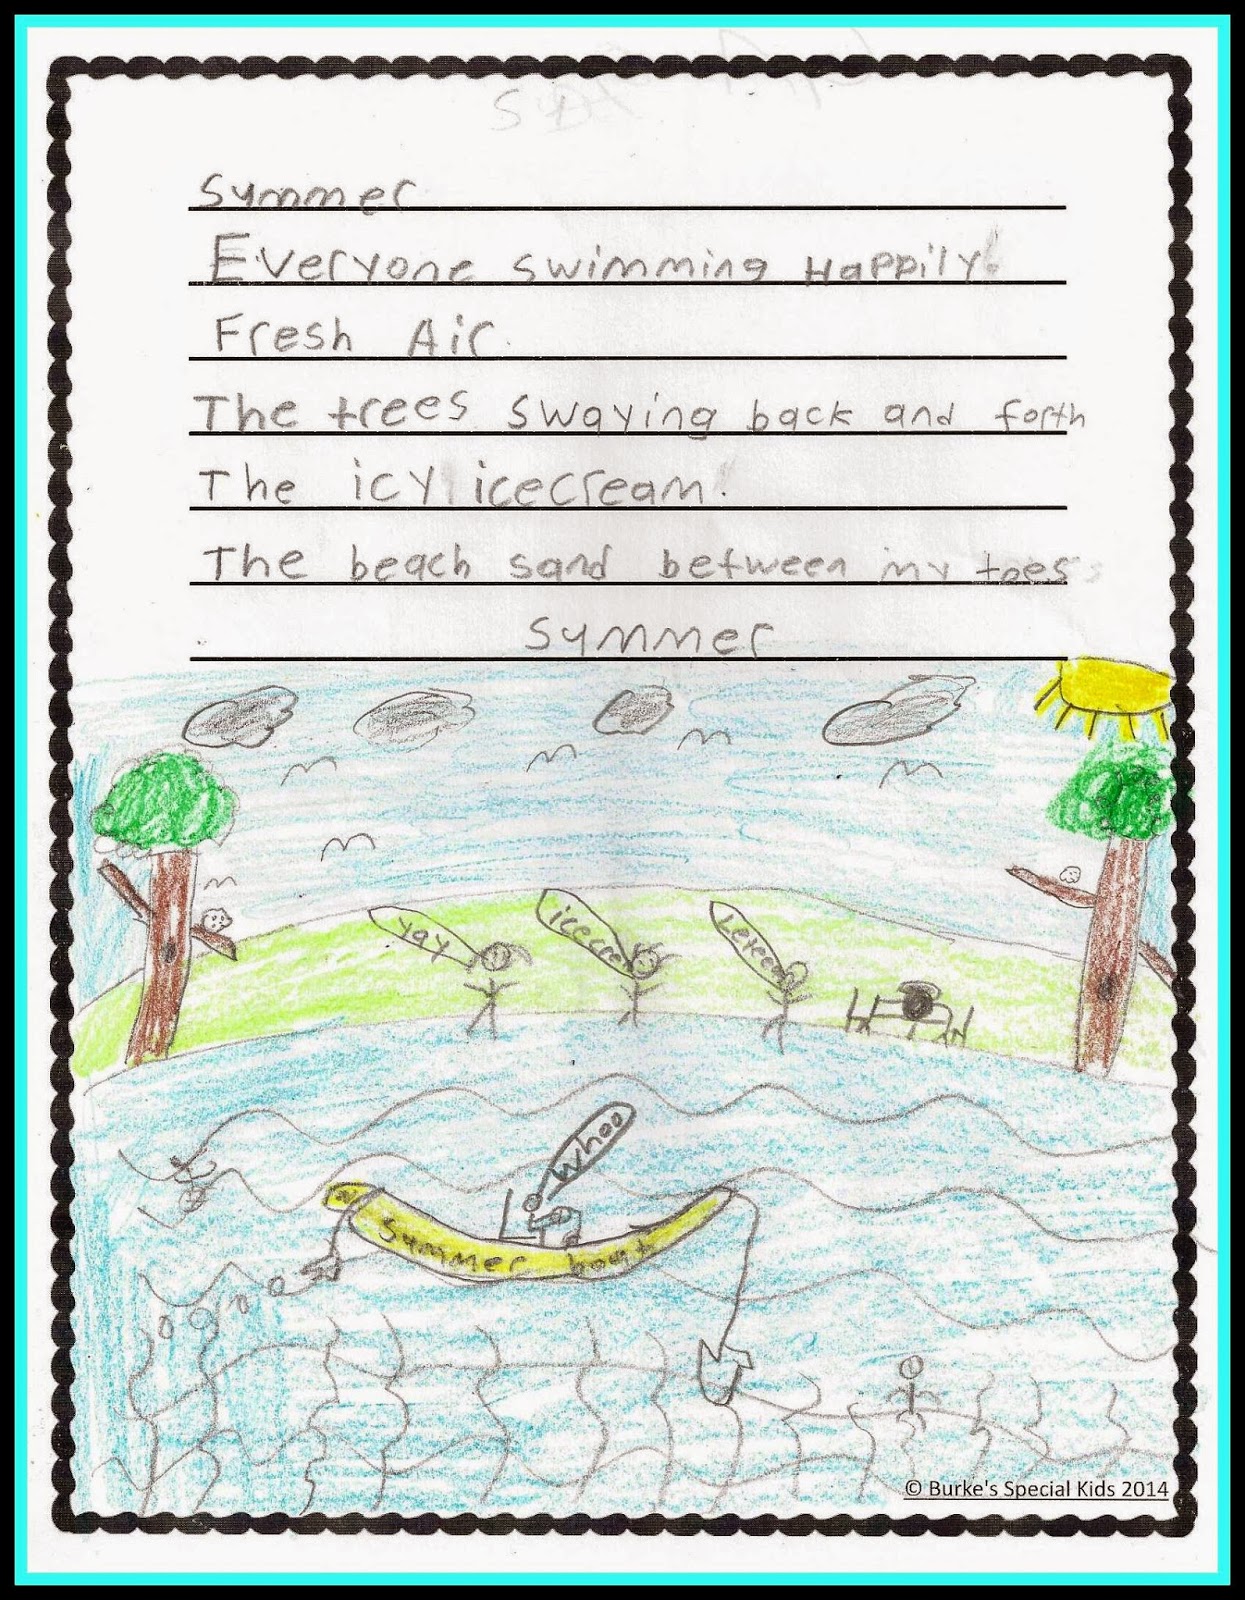 Summer
Everyone swimming Happily.
Fresh Air.
The trees swaying back and forth
The icy icecream.
The beach sand between my toes
Summer
yay
Whoo
Summer boat
© Burke's Special Kids 2014